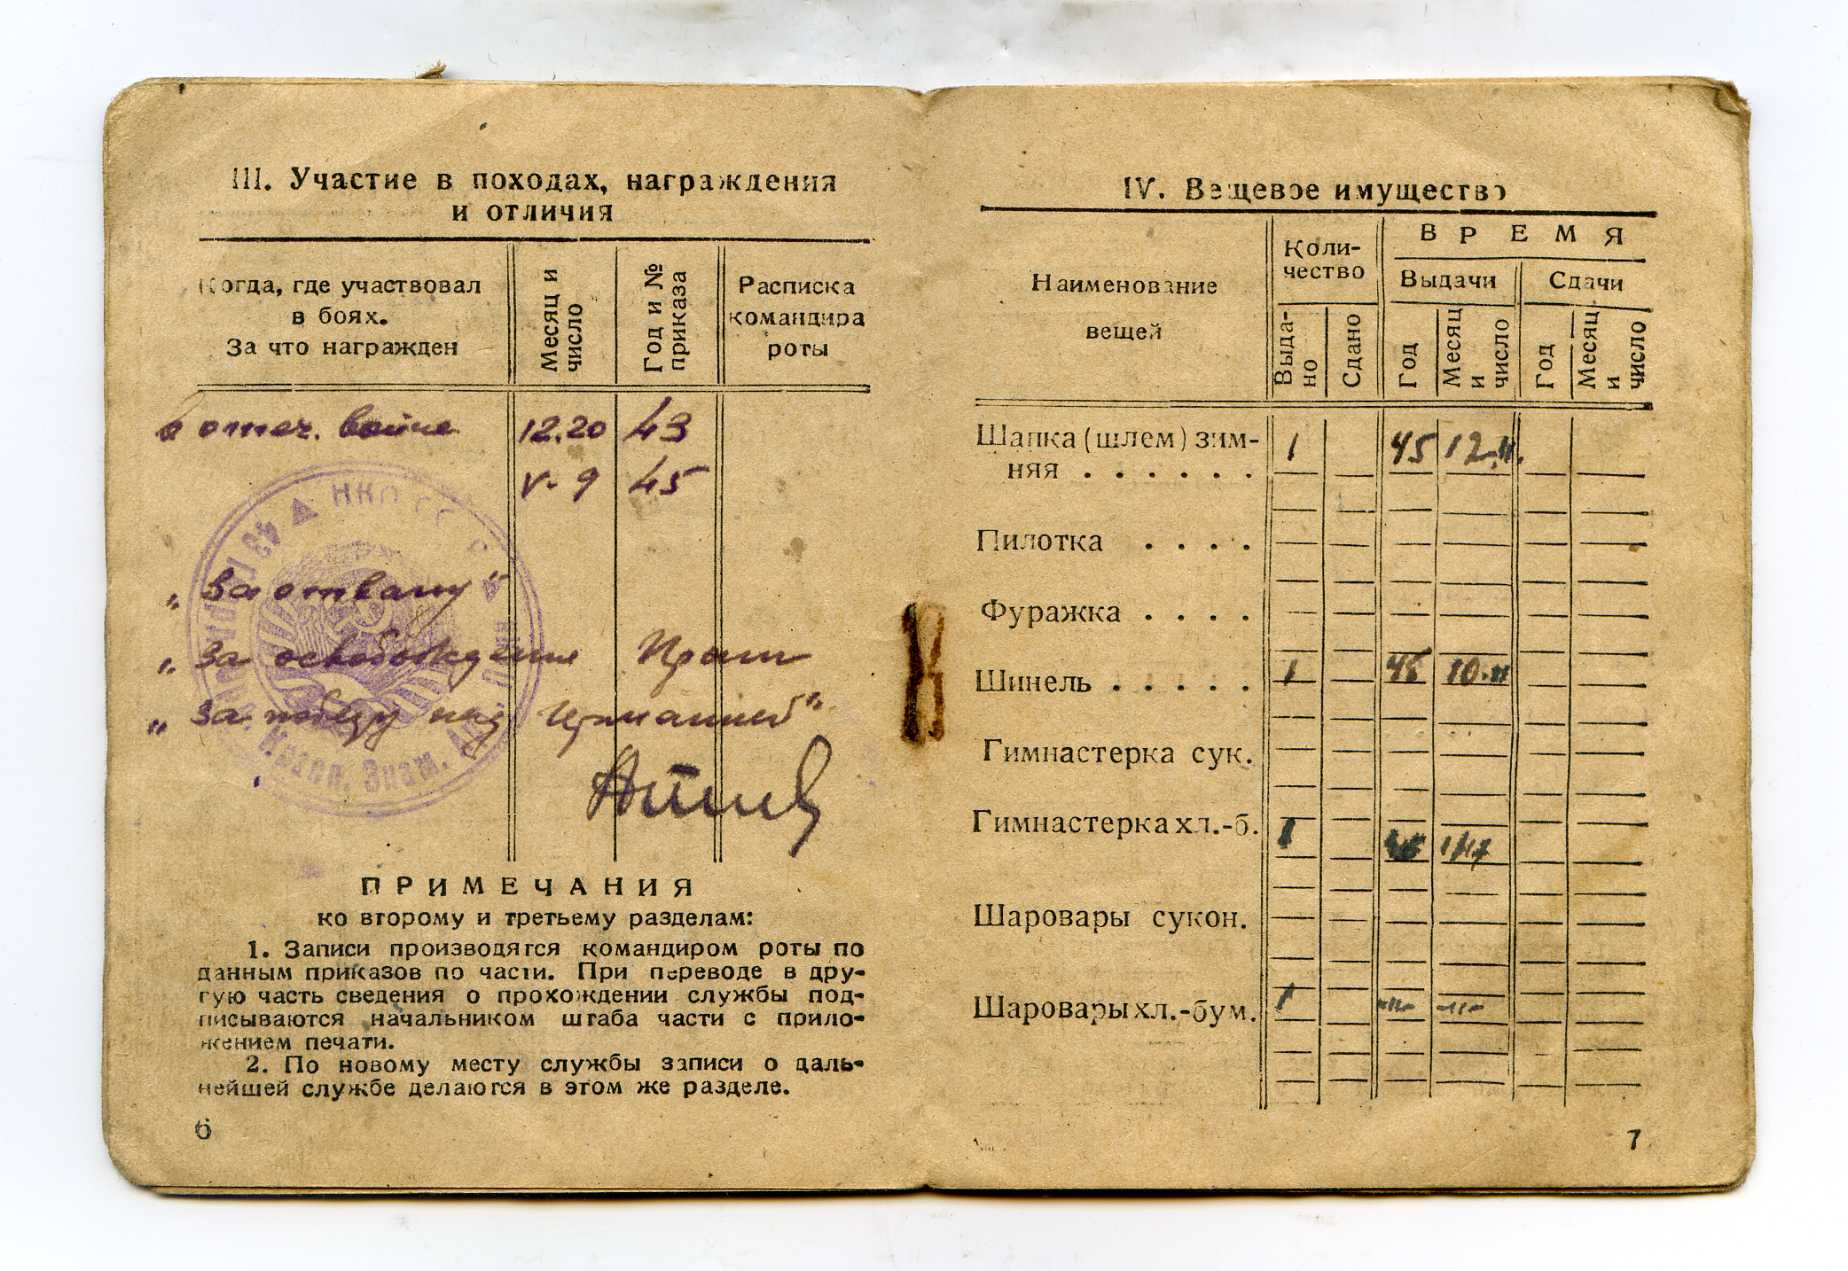 III. Участие в походах, награждения
и отличия
Когда, где участвовал
в боях.
За что награжден
Месяц и
число
Год и №
приказа
Расписка
командира
роты
в отеч. войне 12.20 43
V-9 45
НКО СССР
„За отвагу"
„За освобождение Праги
„За победу над Германией"
Красн. Знам.
ПРИМЕЧАНИЯ
ко второму и третьему разделам:
1. Записи производятся командиром роты по
данным приказов по части. При переводе в дру-
гую часть сведения о прохождении службы под-
писываются начальником штаба части с прило-
жением печати.
2. По новому месту службы записи о даль-
нейшей службе делаются в этом же разделе.
6
IV. Вещевое имущество
Наименование
вещей
Коли-
чество
ВРЕМЯ
Выдачи
Сдачи
Выда-
но
Сдано
Год
Месяц
и
число
Год
Месяц
и
число
Шапка (шлем) зим-
няя . . . . . . 1 45 12.11.
Пилотка . . . .
Фуражка . . . .
Шинель . . . . . 1 45 10.11
Гимнастерка сук.
Гимнастерка хл.-б. 1
Шаровары сукон.
Шаровары хл.-бум. 1 -"- -"-
7